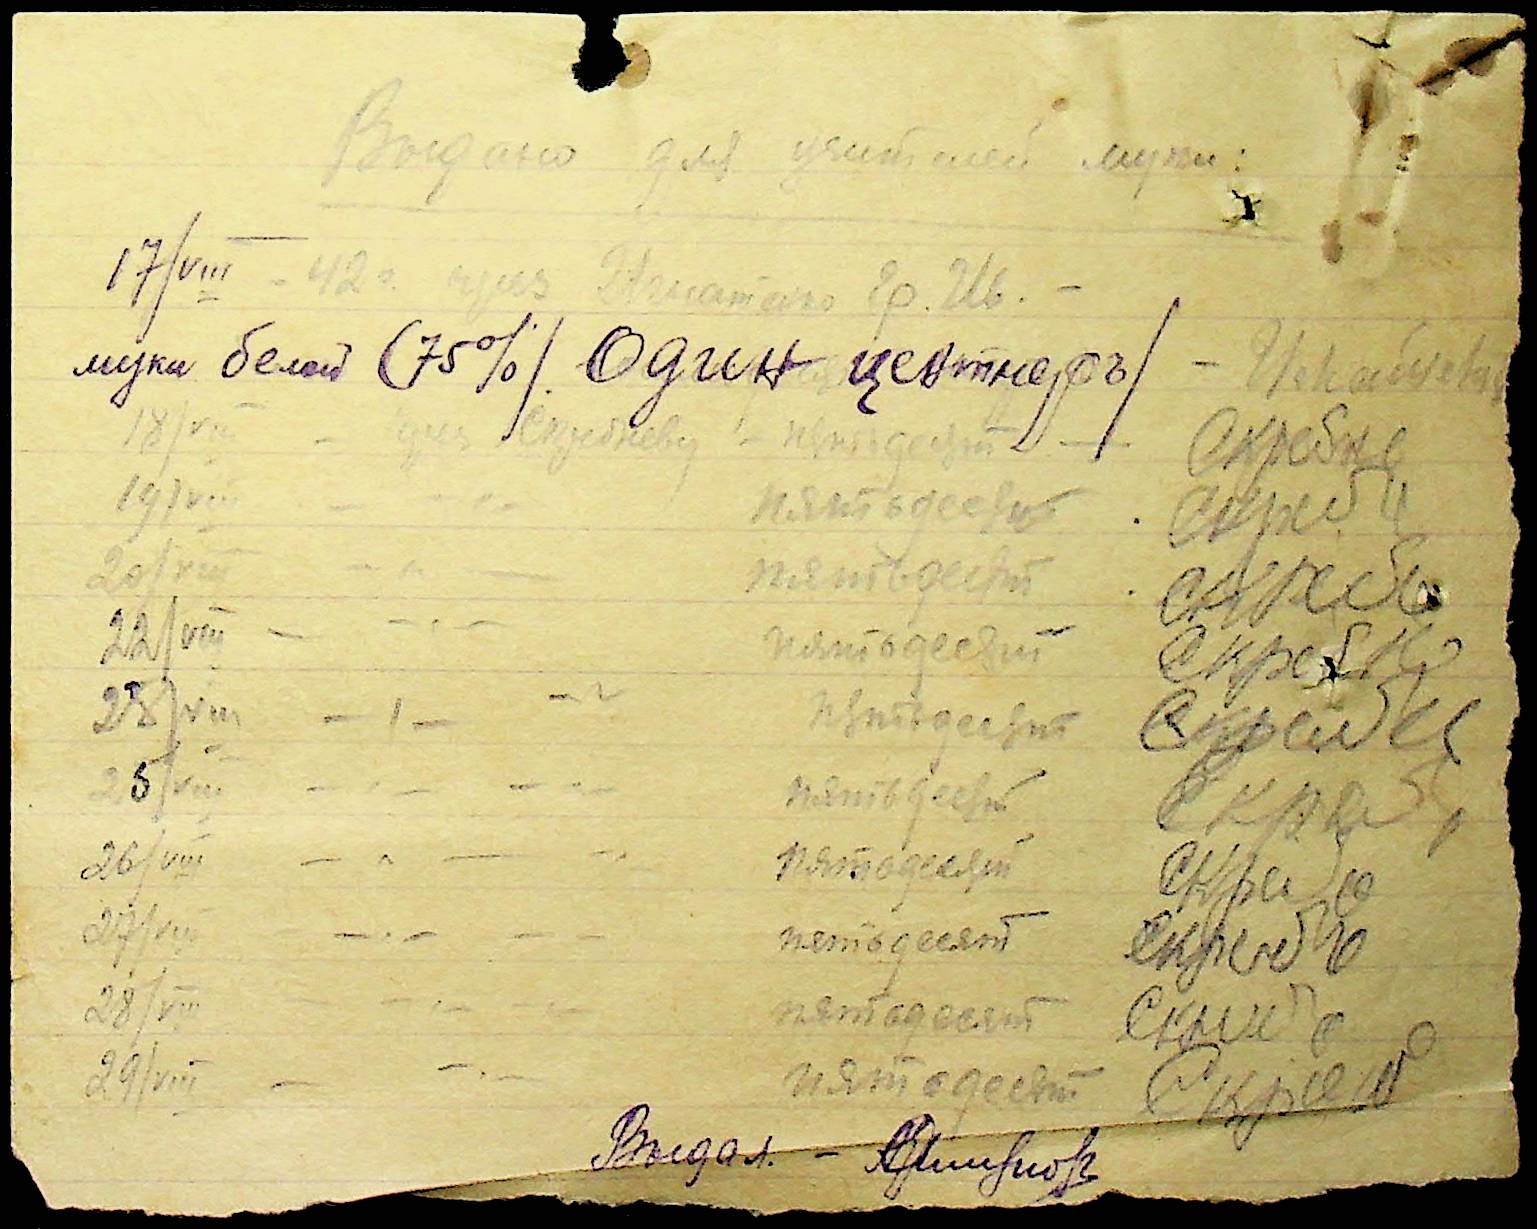 Выдано для учителей муки:
17/VIII - 42 г. через Игнатенко Гр. Ив. -
муки белой (75%/. Один центнеръ/ -
18/VIII - через Скребневу - пятьдесят — Скребне
19/VIII - - " - пятьдесят Скреб
20/VIII - " - пятьдесят Скребн
22/VIII - - " - пятьдесят Скребн
23/VIII - " - - " пятьдесят Скреб
25/VIII - " - - " - пятьдесят Скреб
26/VIII - " - - " - пятьдесят Скреб
27/VIII - " - - - пятьдесят Скреб
28/VIII - - " - - " - пятьдесят Скреб
29/VIII - - " - пятьдесят Скреб
Выдал. -